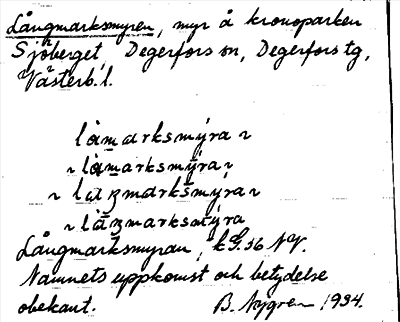 Långmarksmyren, myr å kronoparken
Sjöberget, Degerfors sn, Degerfors tg,
Västerb. l.
låmarksmýra ~
~ làmarksmỹra ~
~ laʒmarksmýra ~
~ låʒmarksmýra
Långmarksmyran, k G. 36 NV.
Namnets uppkomst och betydelse
obekant. B. Nygren 1934.